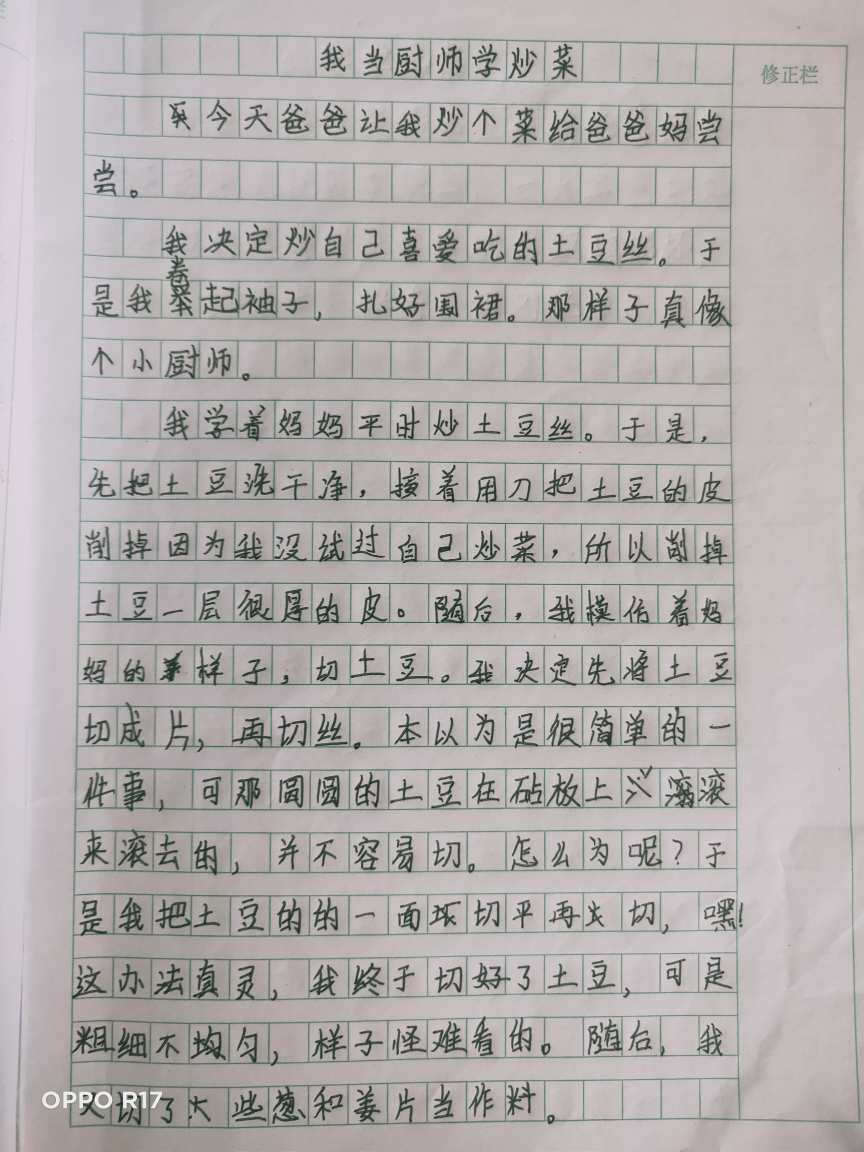 我当厨师学炒菜
修正栏
今天爸爸让我炒个菜给爸爸妈尝
尝。
我决定炒自己喜爱吃的土豆丝。于
是我卷起袖子，扎好围裙。那样子真像
个小厨师。
我学着妈妈平时炒土豆丝。于是，
先把土豆洗干净，接着用刀把土豆的皮
削掉因为我没试过自己炒菜，所以削掉
土豆一层很厚的皮。随后，我模仿着妈
妈的样子，切土豆。我决定先将土豆
切成片，再切丝。本以为是很简单的一
件事，可那圆圆的土豆在砧板上滚
来滚去的，并不容易切。怎么为呢？于
是我把土豆的的一面切平再切，嘿！
这办法真灵，我终于切好了土豆，可是
粗细不均匀，样子怪难看的。随后，我
又切了些葱和姜片当作料。
OPPO R17